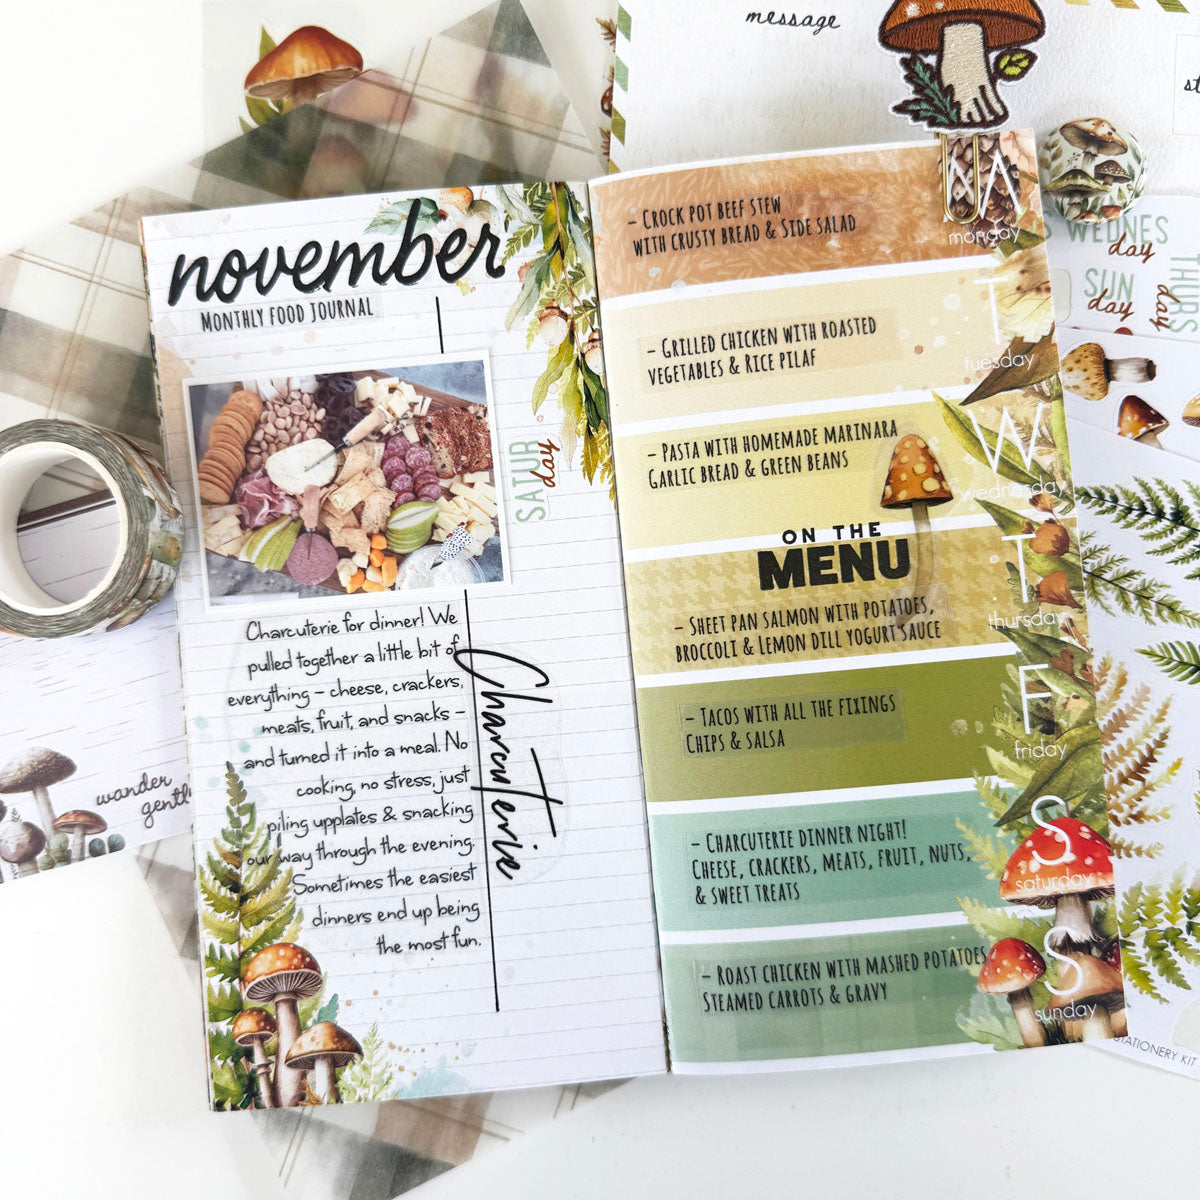 message
november
MONTHLY FOOD JOURNAL
SATUR
day
Charcuterie for dinner! We
pulled together a little bit of
everything – cheese, crackers,
meats, fruit, and snacks –
and turned it into a meal. No
cooking, no stress, just
piling upplates & snacking
our way through the evening.
Sometimes the easiest
dinners end up being
the most fun.
Charcuterie
– CROCK POT BEEF STEW
WITH CRUSTY BREAD & SIDE SALAD
M
monday
– GRILLED CHICKEN WITH ROASTED
VEGETABLES & RICE PILAF
T
tuesday
– PASTA WITH HOMEMADE MARINARA
GARLIC BREAD & GREEN BEANS
W
wednesday
ON THE
MENU
– SHEET PAN SALMON WITH POTATOES,
BROCCOLI & LEMON DILL YOGURT SAUCE
T
thursday
– TACOS WITH ALL THE FIXINGS
CHIPS & SALSA
F
friday
– CHARCUTERIE DINNER NIGHT!
CHEESE, CRACKERS, MEATS, FRUIT, NUTS,
& SWEET TREATS
S
saturday
– ROAST CHICKEN WITH MASHED POTATOES
STEAMED CARROTS & GRAVY
S
sunday
WEDNES
day
SUN
day
THURS
day
wander
gentl
STATIONERY KIT